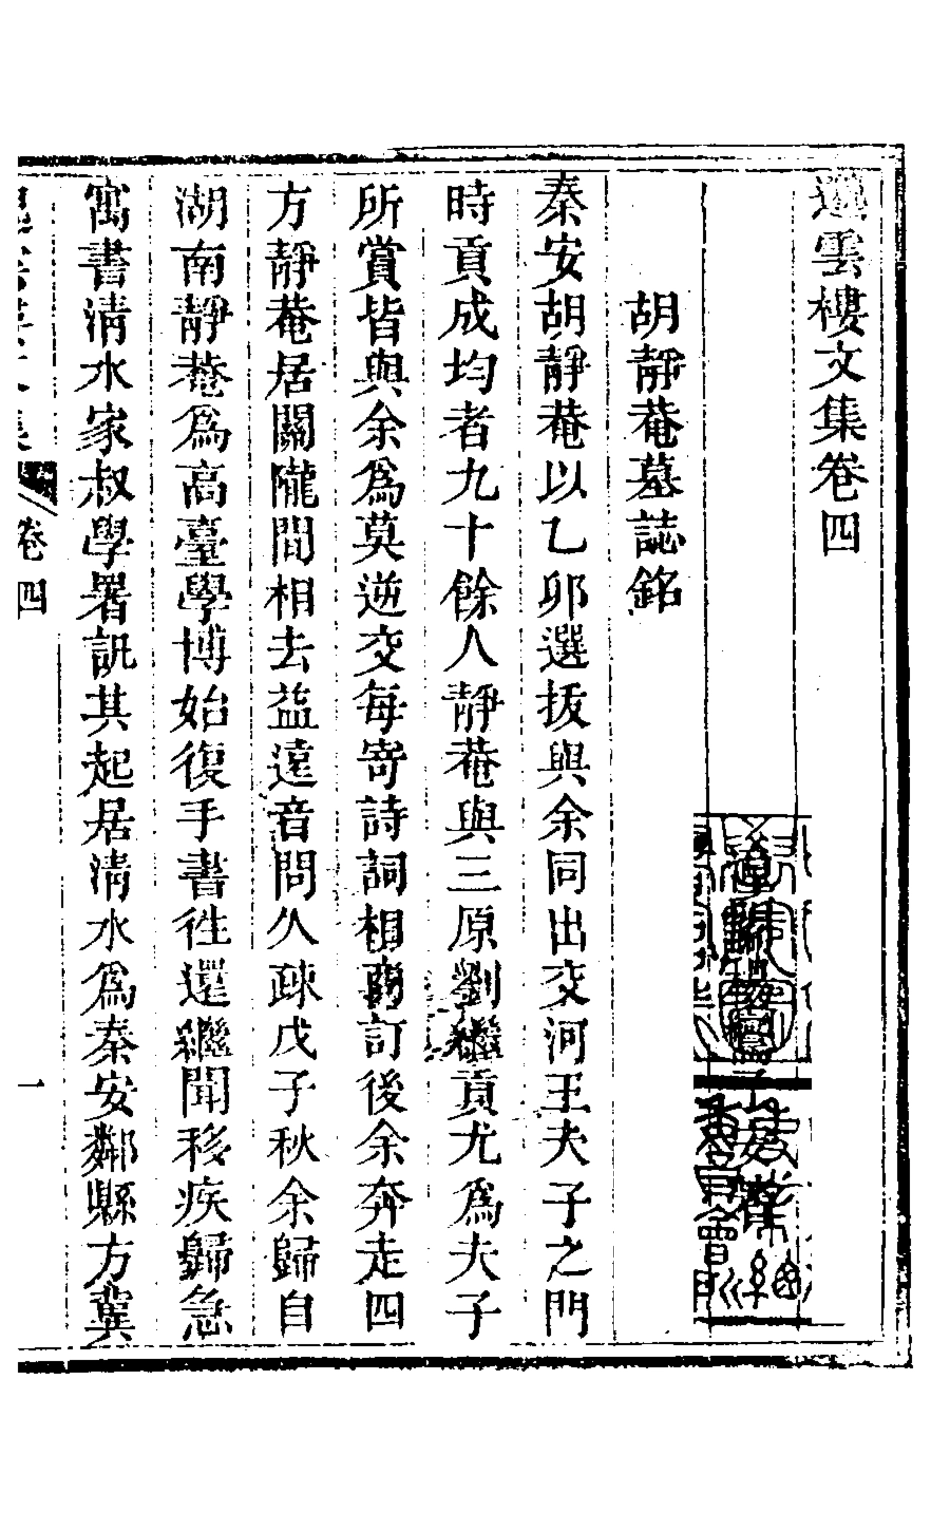 邈雲樓文集卷四
潼關楊鸞子安著
胡靜菴墓誌銘
秦安胡靜菴以乙卯選拔與余同出交河王夫子之門
時貢成均者九十餘人靜菴與三原劉繼貢尤爲夫子
所賞皆與余爲莫逆交每寄詩詞相商訂後余奔走四
方靜菴居關隴間相去益遠音問久疎戊子秋余歸自
湖南靜菴爲高臺學博始復手書徃還繼聞移疾歸急
寓書清水家叔學署訊其起居清水爲秦安鄰縣方冀
卷四
一